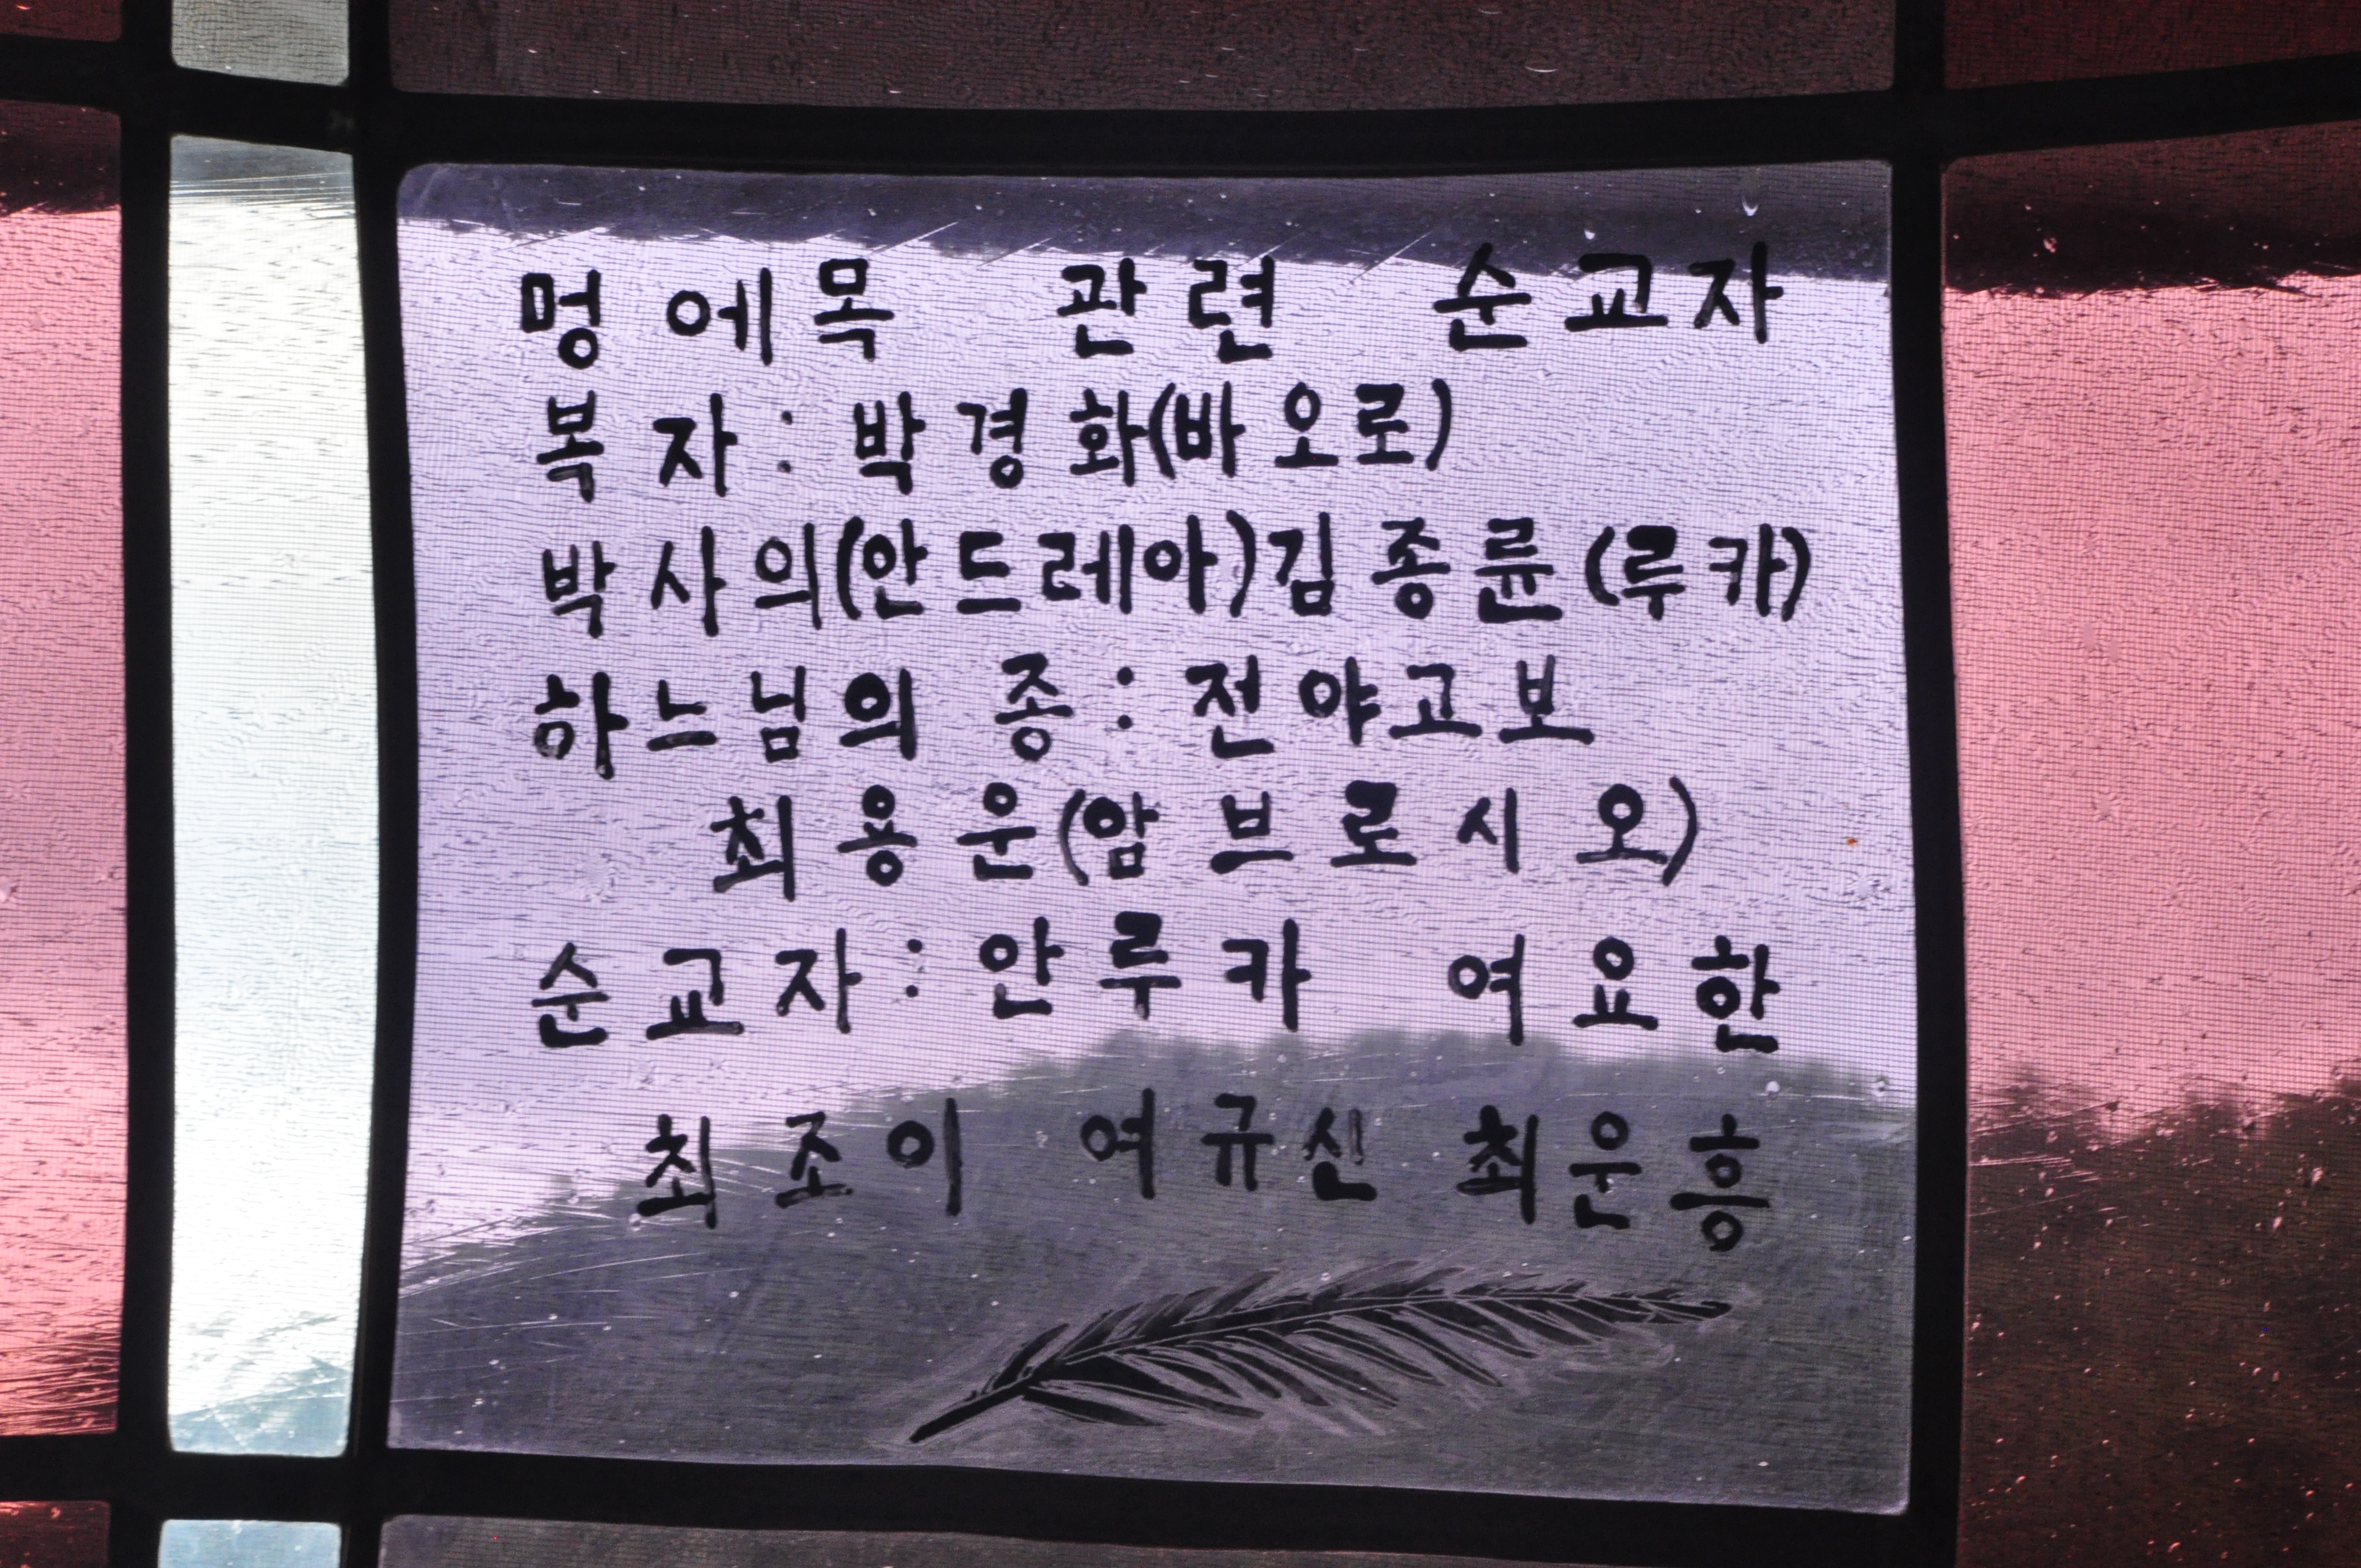 멍에목 관련 순교자
복자: 박경화(바오로)
박사의(안드레아)김종륜(루카)
하느님의 종: 전야고보
최용운(암브로시오)
순교자: 안루카 여요한
최조이 여규신 최운흥